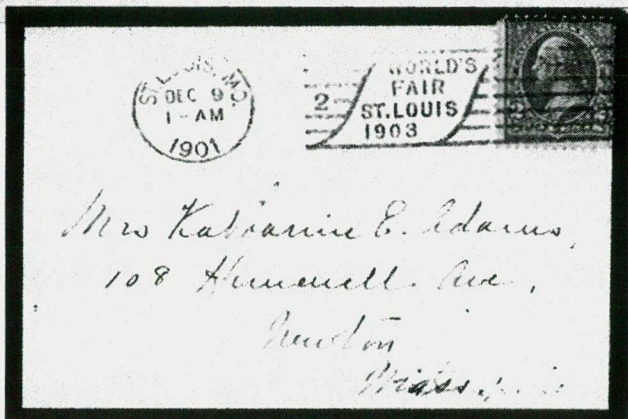 ST. LOUIS, MO.
DEC 9
1 - AM
1901
2
WORLD'S
FAIR
ST. LOUIS
1903
Mrs Katharine E. Adams,
108 Hunnewell Ave,
Newton
Mass.